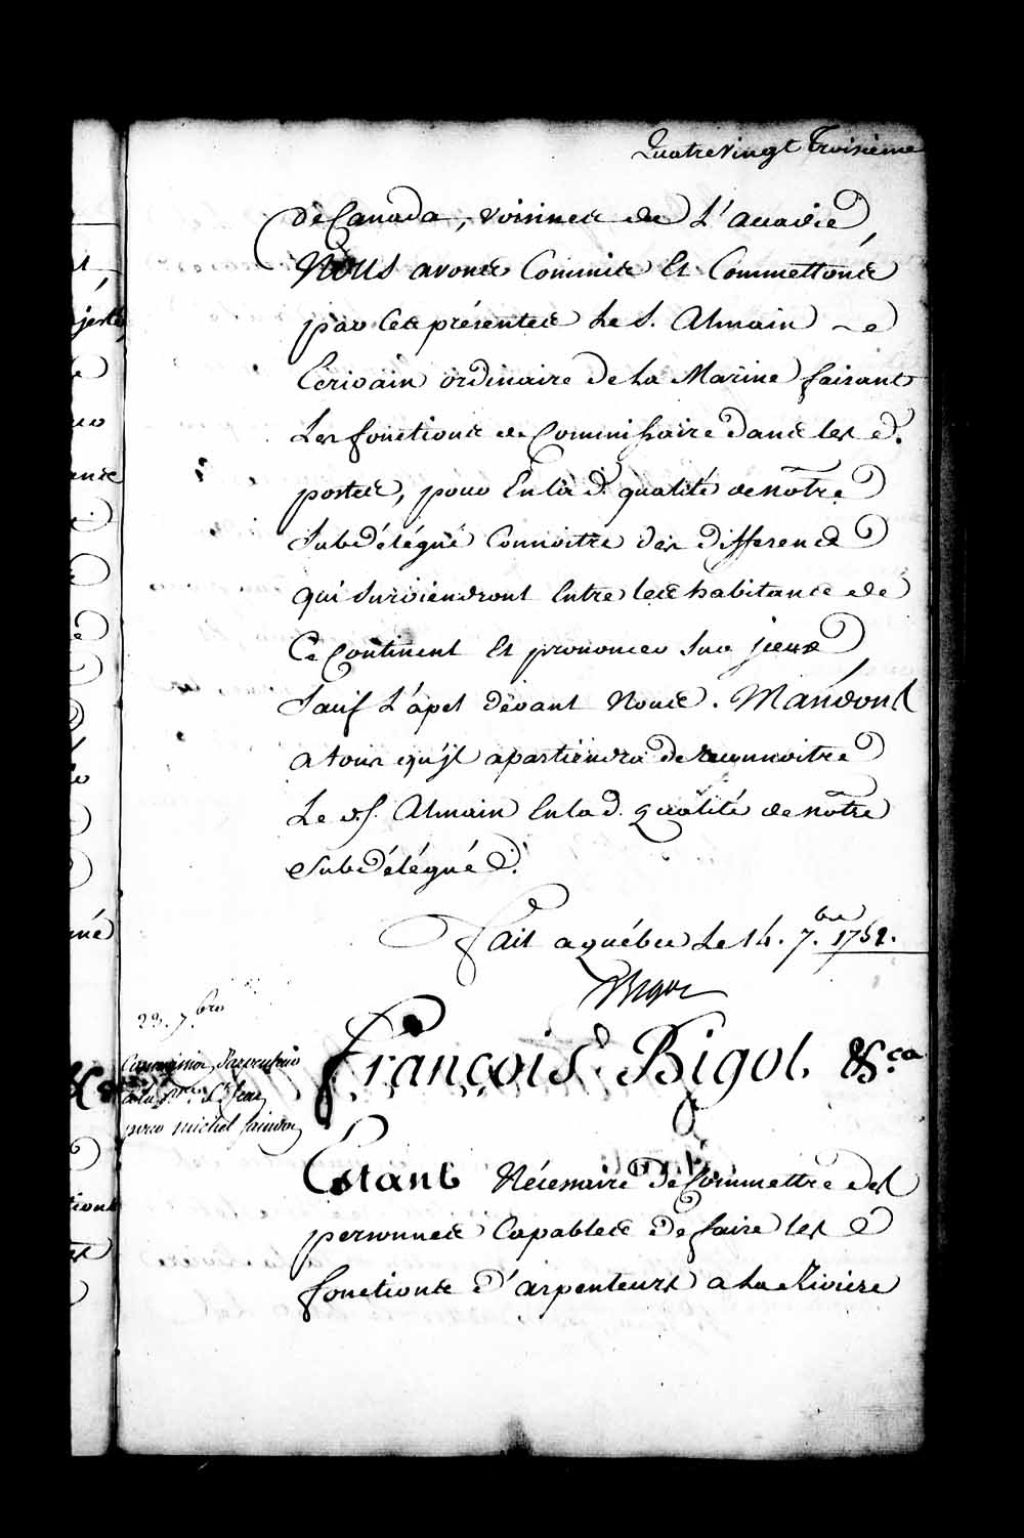 Quatre vingt Troisieme
de Canada, voisines de L'accadie,
Nous avons Commis Et Commettons
par Ces présentes Le S. Almain
Ecrivain ordinaire de la Marine faisant
Les fonctions de Commissaire dans les d.
postes, pour En la d. qualité de notre
Subdélégué Connoitre des differends
qui Surviendront Entre les habitans de
Ce Continent Et prononcer Sur jceux
Sauf L'apel devant Nous. Mandons
a tous qu'jl apartiendra de reconnoitre
Le d. S. Almain En lad. qualité de notre
Subdélégué.
Fait a québec Le 14. 7.bre 1752.
Bigot
23. 7.bre
Commission d'arpenteur
de la
pour michel
François Bigot. &c.a
Estant Nécessaire de Commettre des
personnes Capables de faire les
fonctions d'arpenteurs a la Riviere